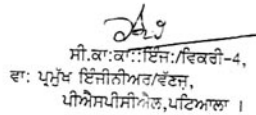 ਸੀ.ਕਾ:ਕਾ::ਇੰਜ:/ਵਿਕਰੀ-4,
ਵਾ: ਪ੍ਰਮੁੱਖ ਇੰਜੀਨੀਅਰ/ਵੰਣਜ,
ਪੀਐਸਪੀਸੀਐਲ,ਪਟਿਆਲਾ ।